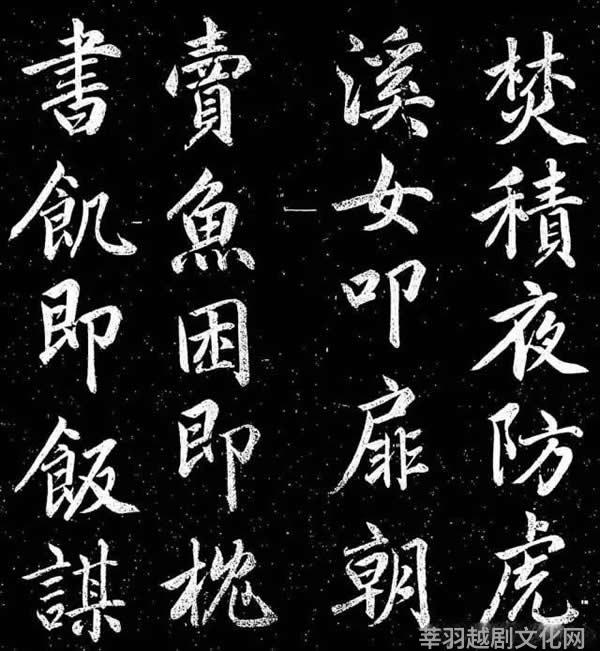 焚積夜防虎
溪女叩扉朝
賣魚困即枕
書飢即飯謀
莘羽越剧文化网